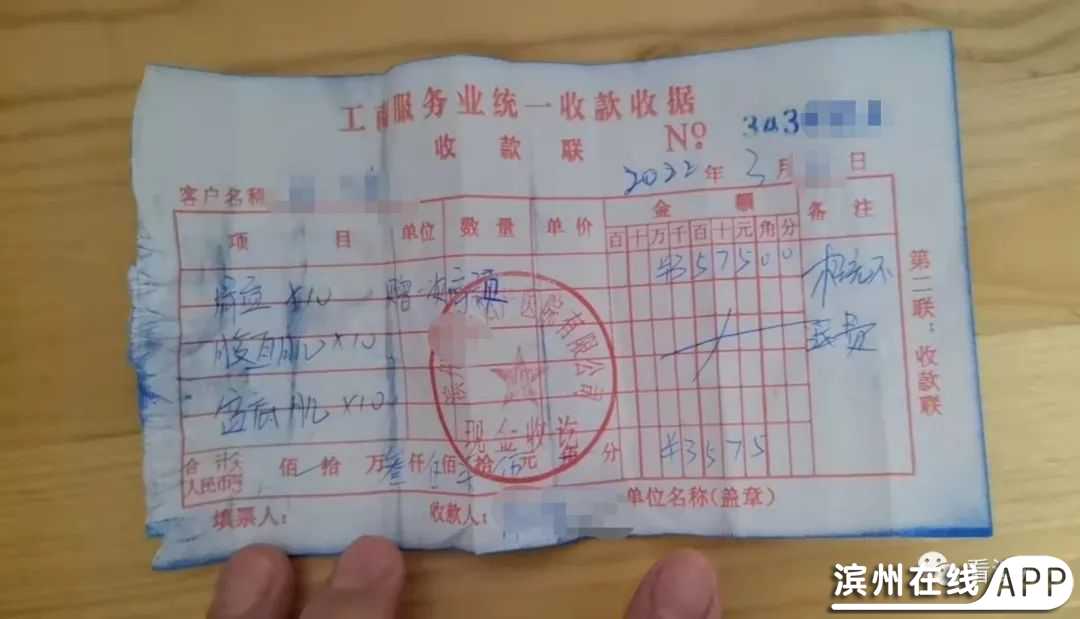 工商服务业统一收款收据
收款联 № 343
2022年3月 日
客户名称
项目 单位 数量 单价 金额 备注
百十万千百十元角分
×10 赠一次 ¥357500
腹直肌×10 不
盆底肌×10 退费
有限公司
现金收讫
合计大 人民币 佰 拾 万叁仟伍佰 拾伍元 角 分 ¥3575
填票人: 收款人: 单位名称(盖章)
第二联:收款联
滨州在线 APP